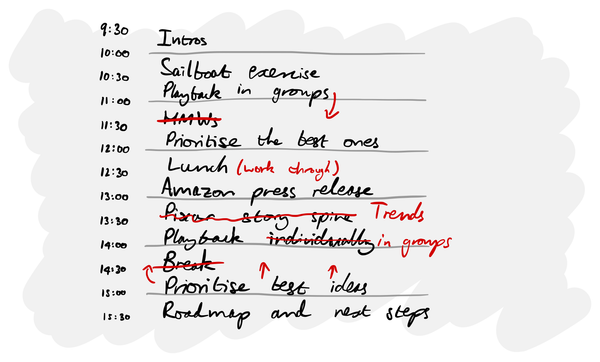 9:30 Intros
10:00
10:30 Sailboat exercise
Playback in groups
11:00
11:30 HMWs
Prioritise the best ones
12:00
12:30 Lunch (work through)
Amazon press release
13:00
13:30 Pixar story spine Trends
Playback individually in groups
14:00
14:30 Break
Prioritise best ideas
15:00
15:30 Roadmap and next steps